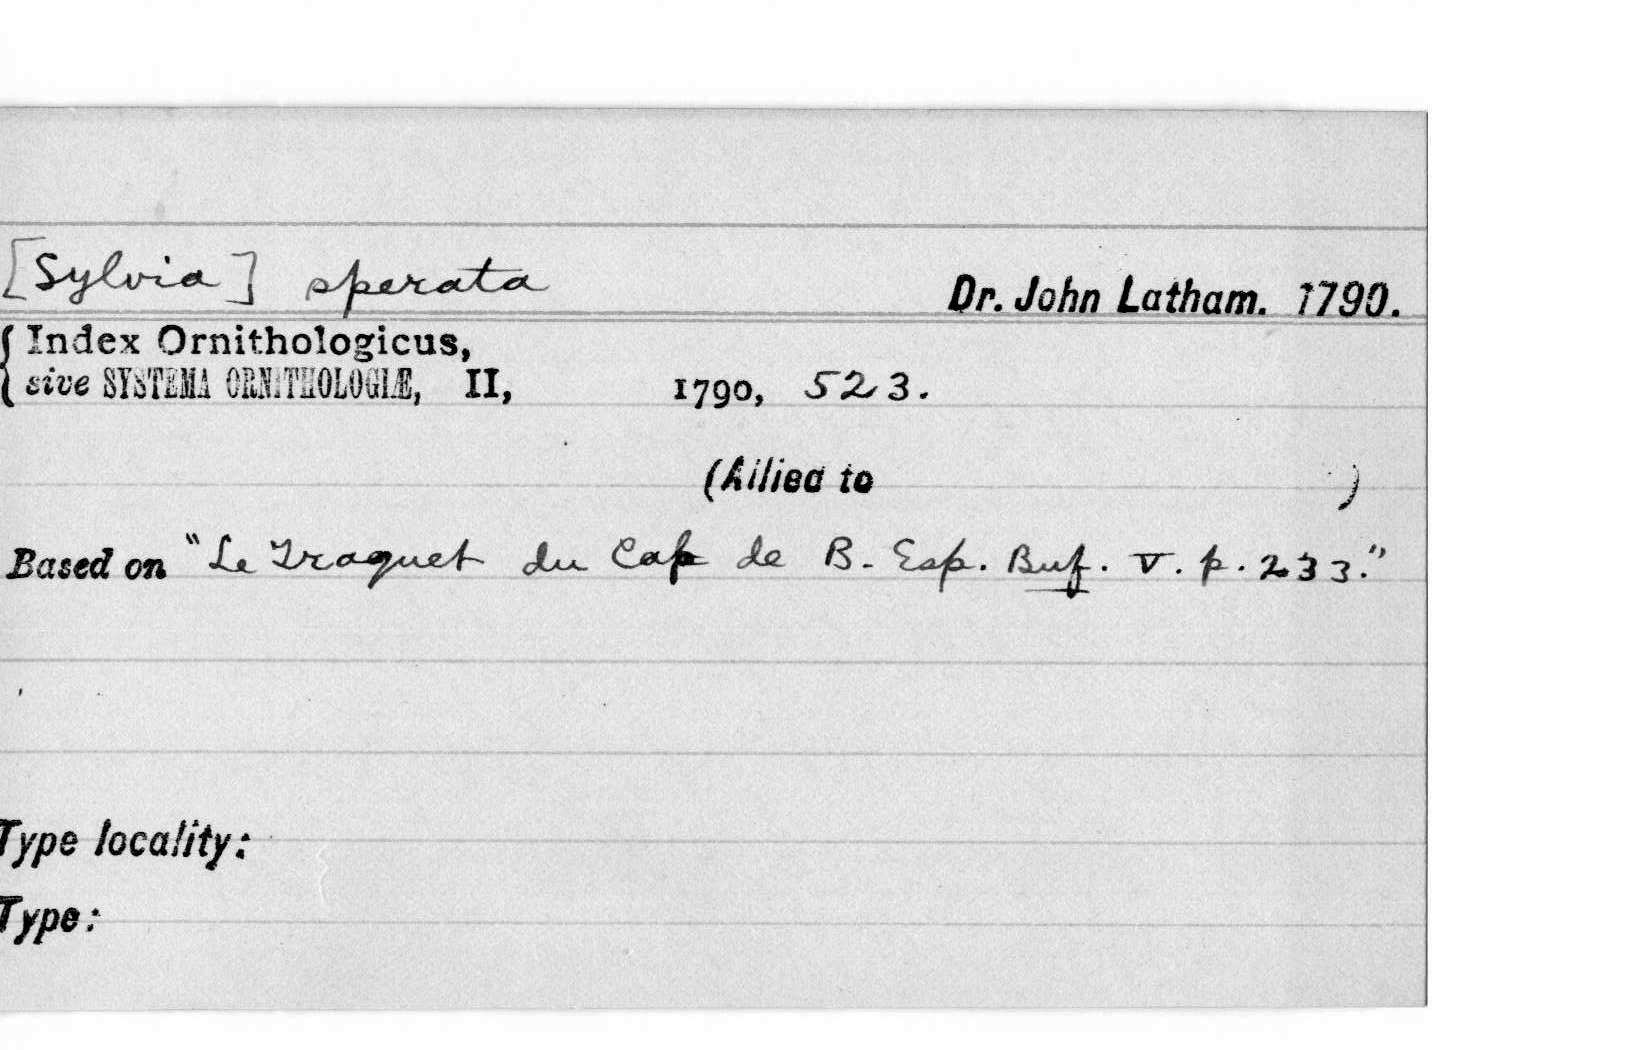 [Sylvia] sperata
Dr. John Latham. 1790.
Index Ornithologicus,
sive SYSTEMA ORNITHOLOGIÆ, II, 1790, 523.
(Allied to )
Based on "Le Traquet du Cap de B. Esp. Buf. V. p. 233."
Type locality:
Type: